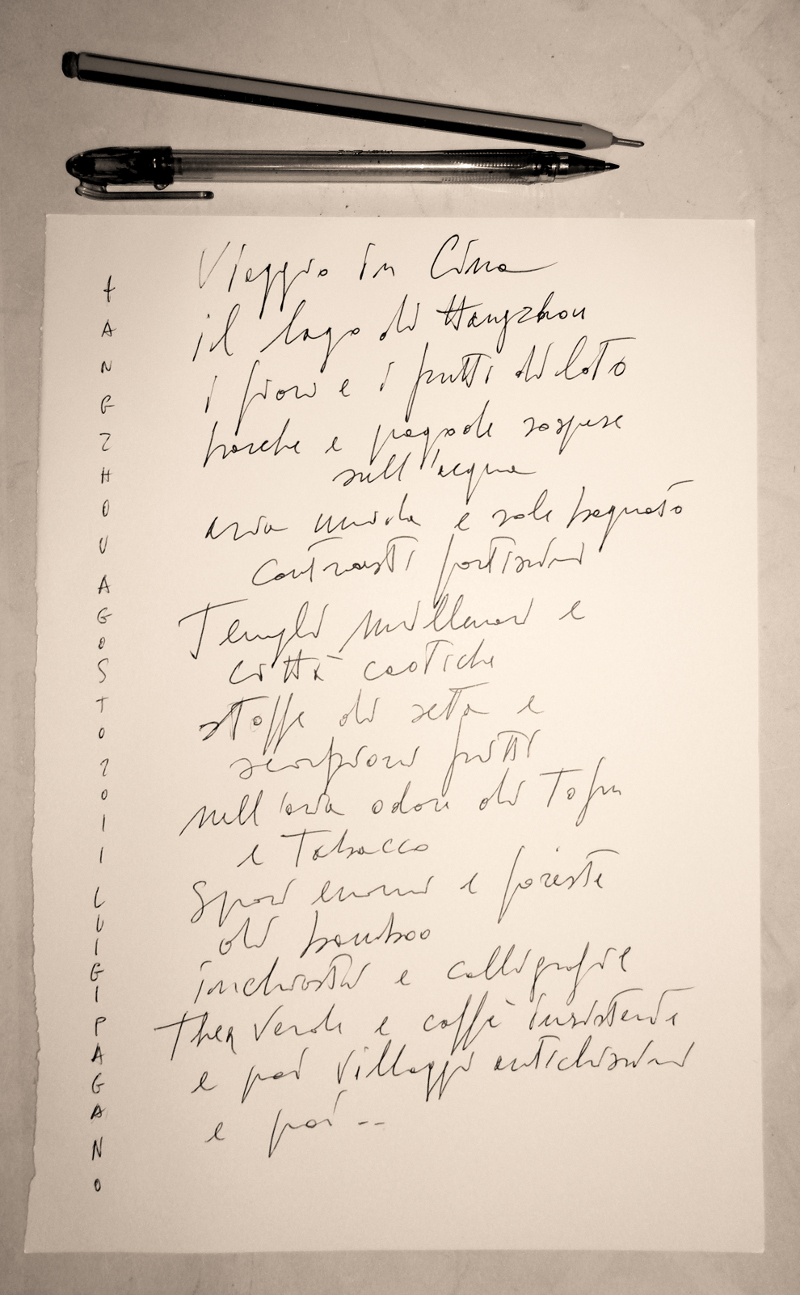 Viaggio in Cina
il lago di Hangzhou
i fiori e i frutti di loto
barche e pagode sospese
sull'acqua
aria umida e sole bagnato
contrasti fortissimi
Templi millenari e
città caotiche
stoffe di seta e
scorpioni fritti
nell'aria odori di Tofu
e Tabacco
Spazi enormi e foreste
di bamboo
inchiostri e calligrafie
thea verde e caffè inesistente
e poi villaggi antichissimi
e poi --
HANGZHOU AGOSTO 2011 LUIGI PAGANO